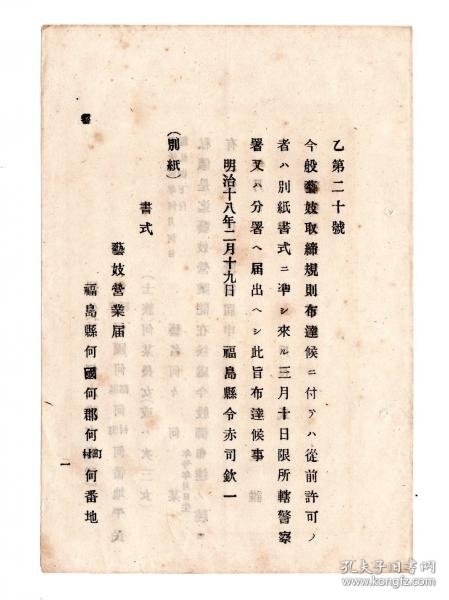 乙第二十號
今般藝妓取締規則布達候ニ付テハ從前許可ノ
者ハ別紙書式ニ準シ來ル三月十日限所轄警察
署又ハ分署ヘ届出ヘシ此旨布達候事
明治十八年二月十九日　福島縣令赤司欽一
（別紙）
書式
藝妓營業届
福島縣何國何郡何町村何番地
一
孔夫子旧书网
book.kongfz.com